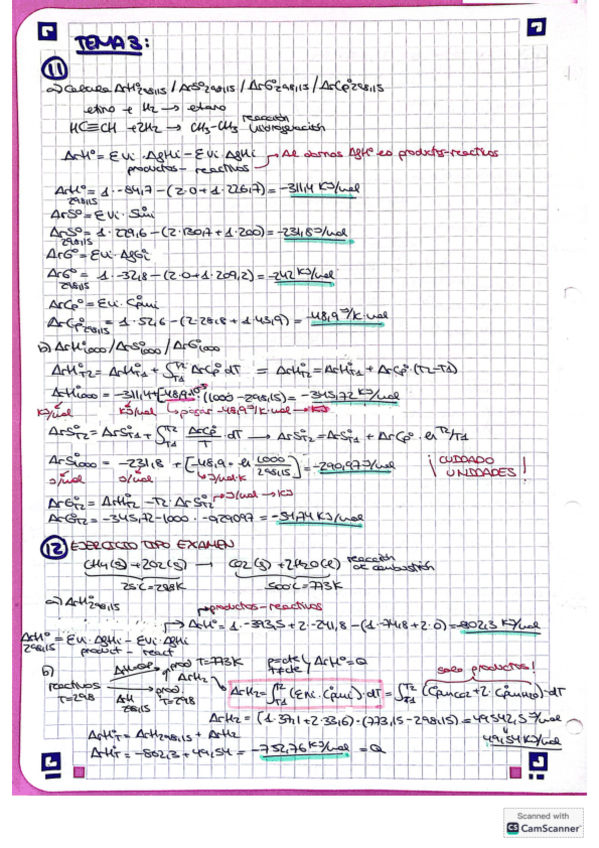 TEMA 3:
11
a) Calcula ΔrH°298,15 / ΔrS°298,15 / ΔrG°298,15 / ΔrCp°298,15
etino + H2 → etano
HC≡CH + 2H2 → CH3-CH3 reacción hidrogenación
ΔrH° = Σνi · ΔfHi - Σνi · ΔfHi → Al darnos ΔfH° es productos-reactivos
productos - reactivos
ΔrH°298,15 = 1 · -84,7 - (2·0 + 1·226,7) = -311,4 KJ/mol
ΔrS° = Σνi · S°mi
ΔrS°298,15 = 1·229,6 - (2·130,7 + 1·200) = -231,8 J/mol
ΔrG° = Σνi · ΔfG°i
ΔrG°298,15 = 1 · -32,8 - (2·0 + 1·209,2) = -242 KJ/mol
ΔrCp° = Σνi · C°pmi
ΔrCp°298,15 = 1·52,6 - (2·28,8 + 1·43,9) = -48,9 J/K·mol
b) ΔrH°1000 / ΔrS°1000 / ΔrG°1000
ΔrH°T2 = ΔrH°T1 + ∫T1T2 ΔrCp° dT = ΔrH°T2 = ΔrH°T1 + ΔrCp° · (T2-T1)
ΔrH°1000 = -311,4 + [-48,9·10⁻³ · (1000 - 298,15) = -345,72 KJ/mol
KJ/mol KJ/mol ↳ pasar -48,9 J/K·mol → KJ
ΔrS°T2 = ΔrS°T1 + ∫T1T2 ΔrCp°/T · dT → ΔrS°T2 = ΔrS°T1 + ΔrCp° · ln T2/T1
ΔrS°1000 = -231,8 + [-48,9 · ln 1000/298,15] = -290,97 J/mol ¡CUIDADO UNIDADES!
J/mol J/mol ↳ J/mol·K
ΔrG°T2 = ΔrH°T2 - T2 · ΔrS°T2 → J/mol → KJ
ΔrG°T2 = -345,72 - 1000 · -0,29097 = -54,74 KJ/mol
12 EJERCICIO TIPO EXAMEN
CH4(g) + 2O2(g) → CO2(g) + 2H2O(l) reacción de combustión
25°C = 298K 500°C = 773K
a) ΔrH°298,15
→ productos - reactivos
→ ΔrH° = 1 · -393,5 + 2 · -241,8 - (1 · -74,8 + 2·0) = -802,3 KJ/mol
ΔrH°298,15 = Σνi · ΔfHi - Σνi · ΔfHi
product - react
b)
prod T=773K p=cte ΔrH° = Q solo productos!
reactivos T=298 ΔH 298,15 prod. T=298 ΔrH2
ΔrH2 = ∫T1T2 (Σni · C°pmi) · dT = ∫T1T2 (C°pmCO2 + 2 · C°pmH2O) · dT
ΔrH2 = (1·37,1 + 2·33,6) · (773,15 - 298,15) = 49542,5 J/mol
49,54 KJ/mol
ΔrH°T = ΔrH°298,15 + ΔrH2
ΔrH°T = -802,3 + 49,54 = -752,76 KJ/mol = Q
Scanned with
CS CamScanner